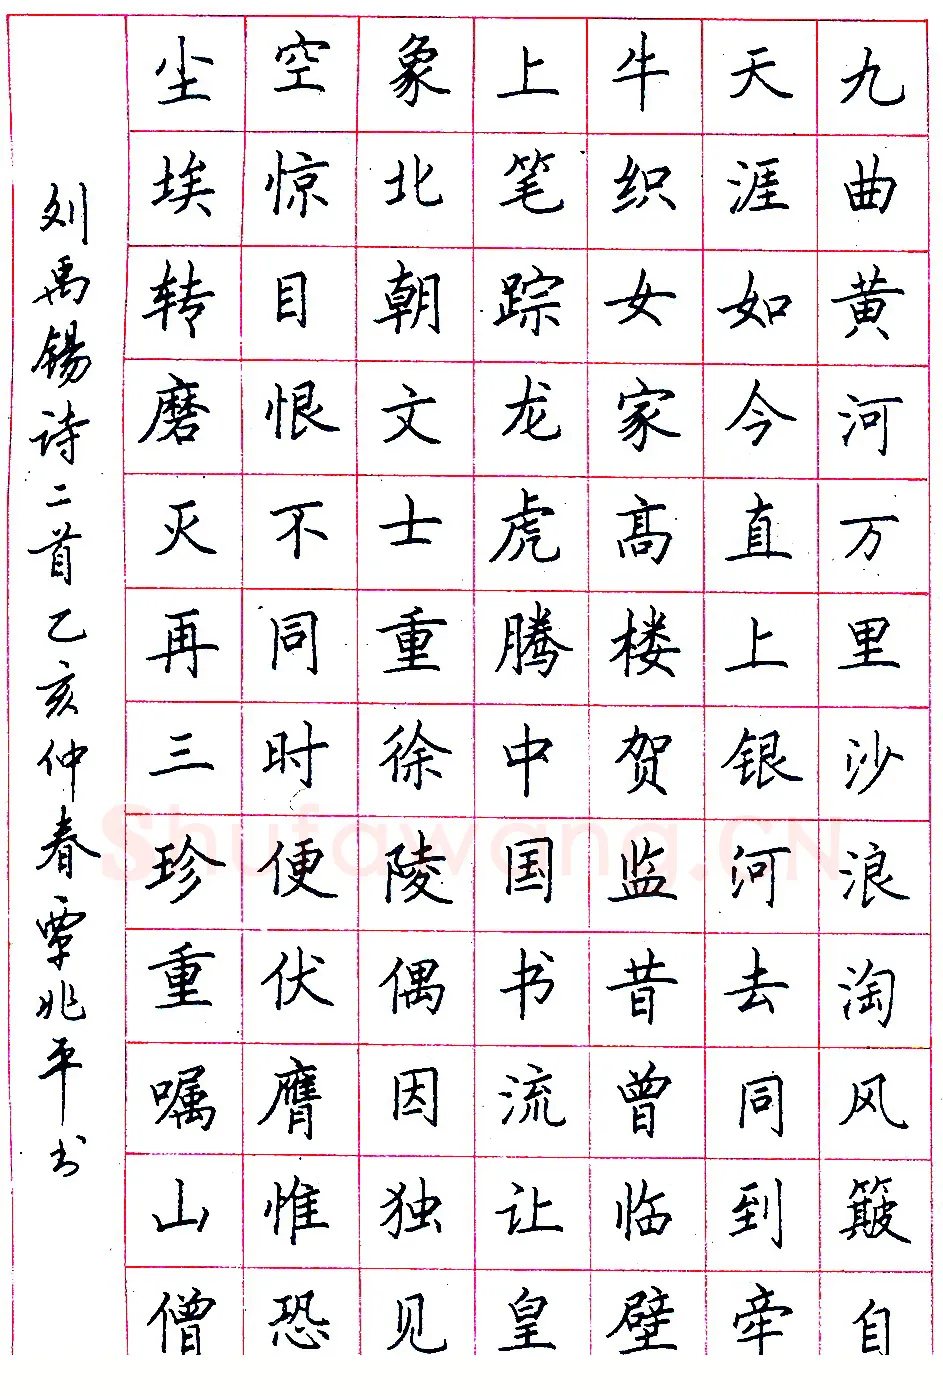 九曲黄河万里沙浪淘风簸自
天涯如今直上银河去同到牵
牛织女家高楼贺监昔曾临壁
上笔踪龙虎腾中国书流让皇
象北朝文士重徐陵偶因独见
空惊目恨不同时便伏膺惟恐
尘埃转磨灭再三珍重嘱山僧
刘禹锡诗二首乙亥仲春覃兆平书
Shufawang.CN